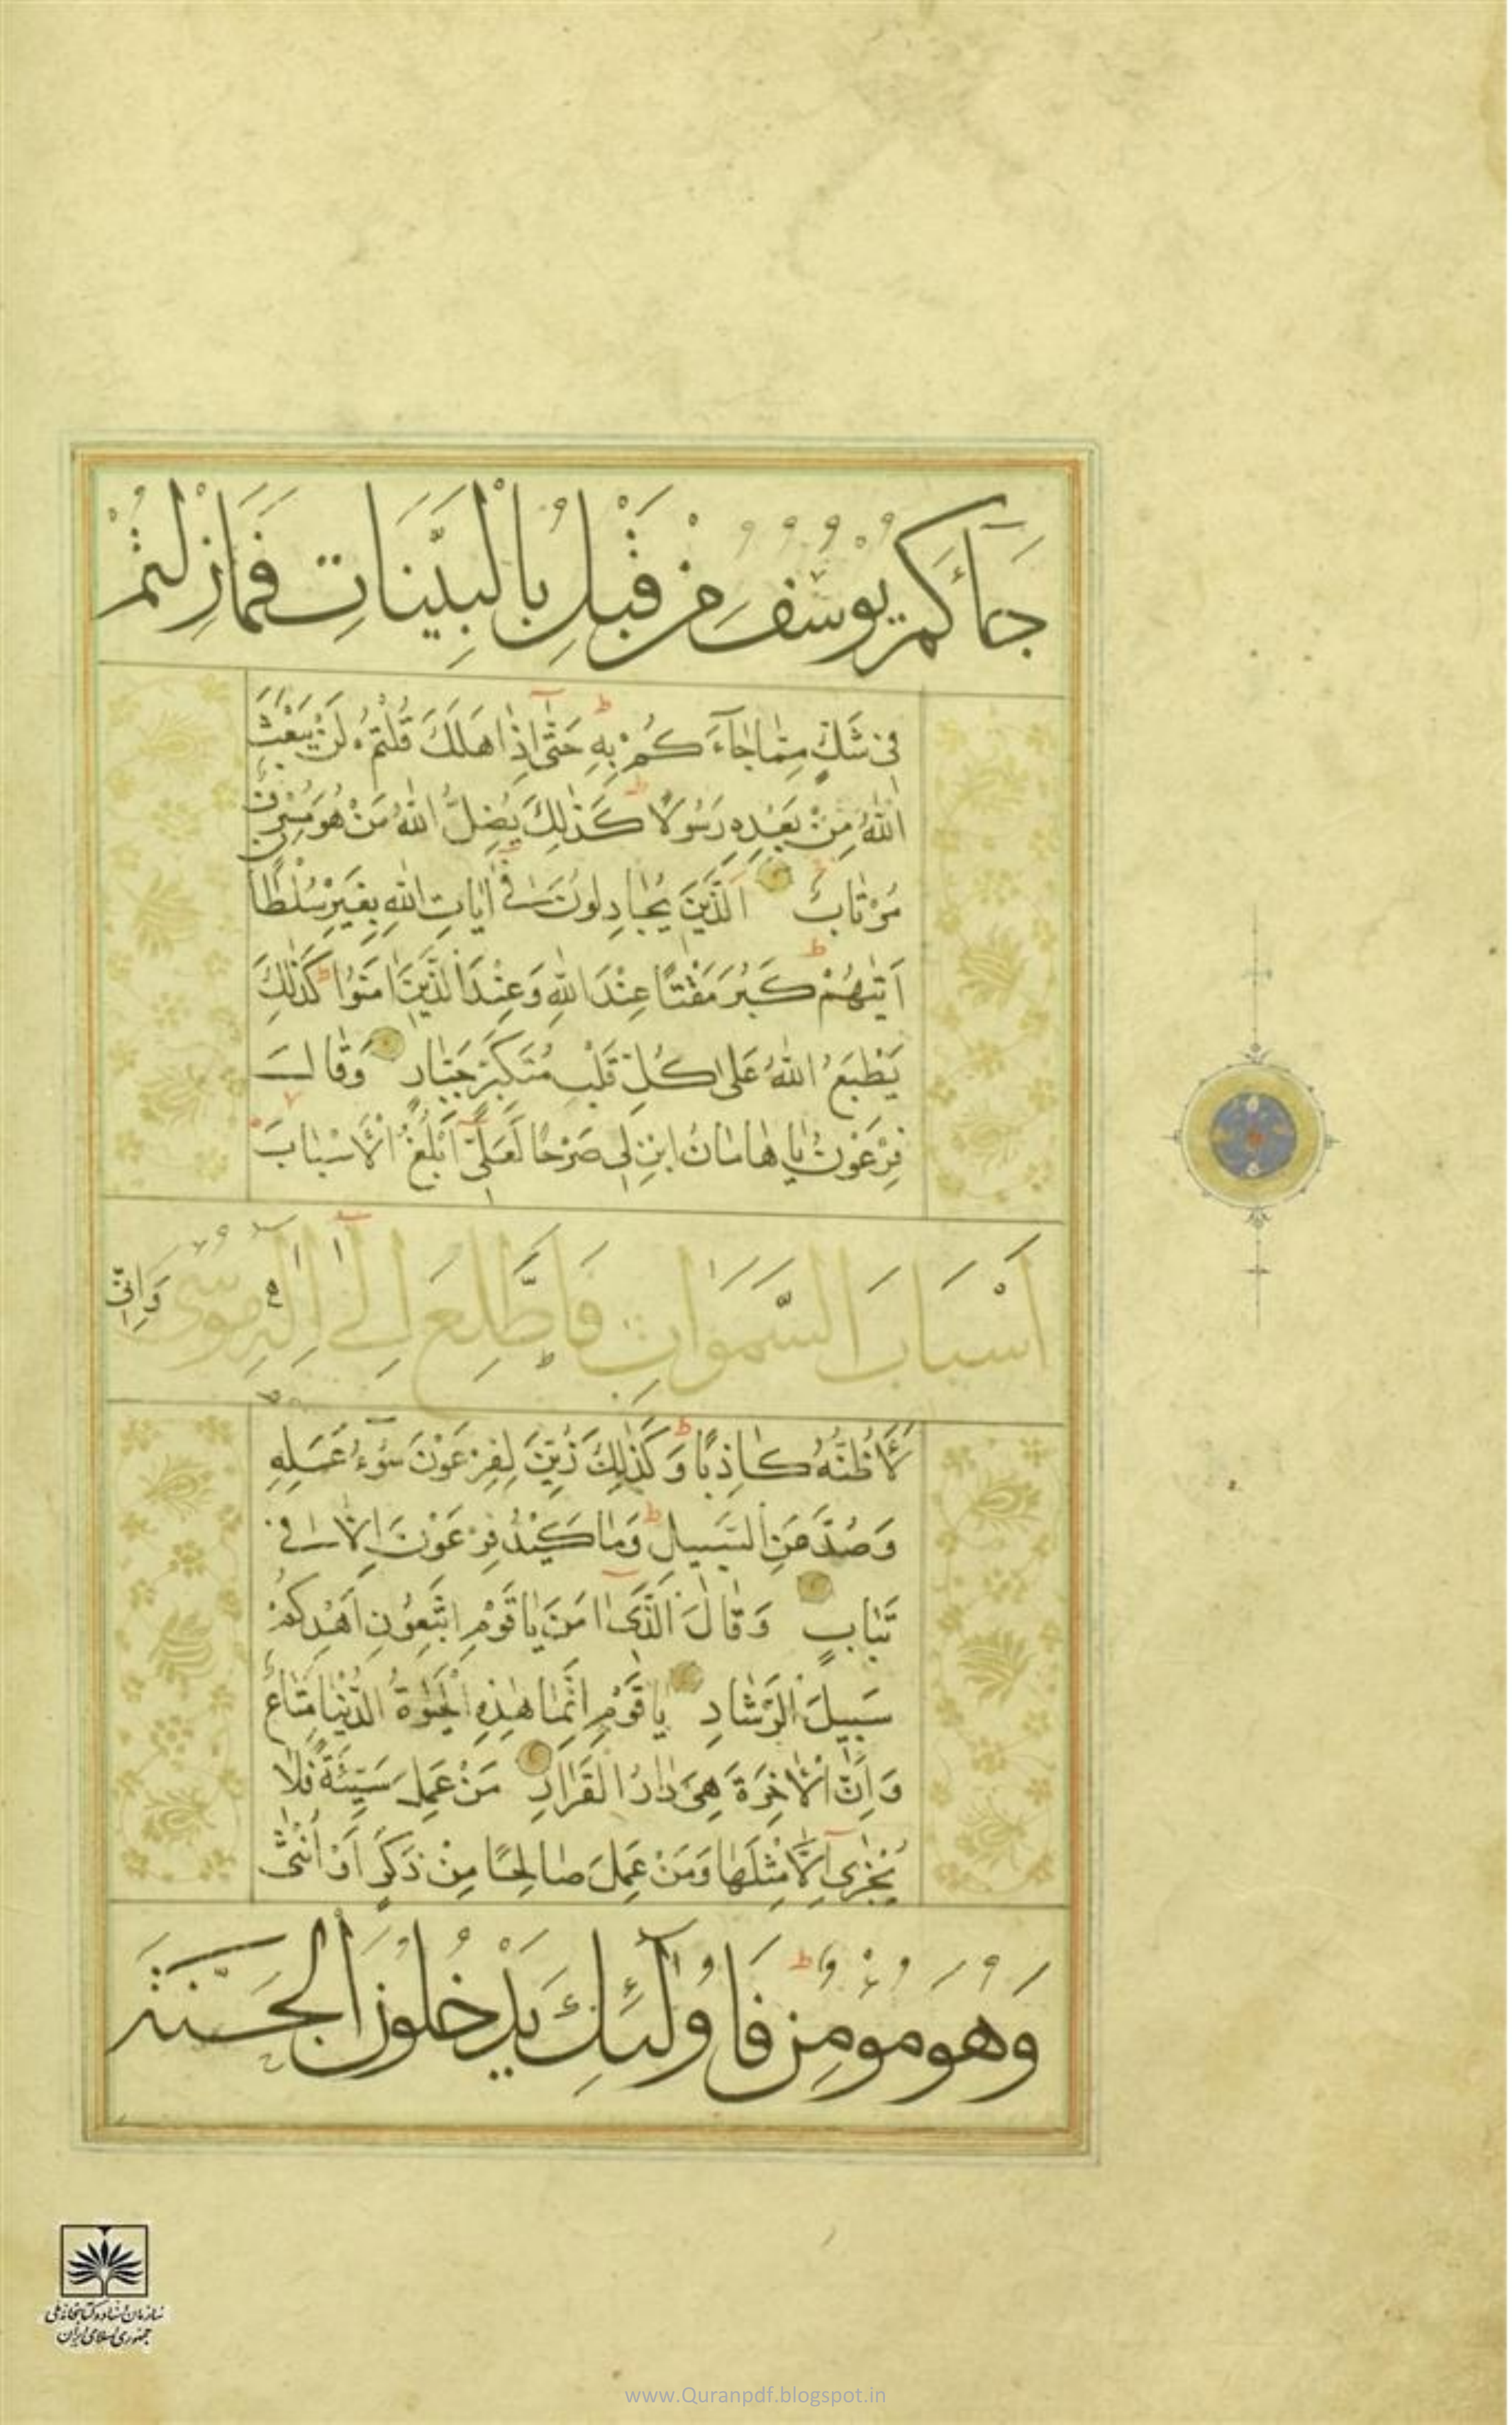 جَآئَكُمْ يُوسُفُ مِنْ قَبْلُ بِالْبَيِّنَاتِ فَمَازِلْتُمْ
فِى شَكٍّ مِمَّا جَآءَكُمْ بِهِ حَتّٰى اِذَا هَلَكَ قُلْتُمْ لَنْ يَبْعَثَ
اللّٰهُ مِنْ بَعْدِهِ رَسُولًا كَذٰلِكَ يُضِلُّ اللّٰهُ مَنْ هُوَ مُسْرِفٌ
مُرْتَابٌ اَلَّذِينَ يُجَادِلُونَ فِى اٰيَاتِ اللّٰهِ بِغَيْرِ سُلْطَانٍ
اَتٰيهُمْ كَبُرَ مَقْتًا عِنْدَ اللّٰهِ وَعِنْدَ الَّذِينَ اٰمَنُوا كَذٰلِكَ
يَطْبَعُ اللّٰهُ عَلٰى كُلِّ قَلْبِ مُتَكَبِّرٍ جَبَّارٍ وَقَالَ
فِرْعَوْنُ يَا هَامَانُ ابْنِ لِى صَرْحًا لَعَلِّى اَبْلُغُ الْاَسْبَابَ
اَسْبَابَ السَّمٰوَاتِ فَاَطَّلِعَ اِلٰى اِلٰهِ مُوسٰى وَاِنِّى
لَاَظُنُّهُ كَاذِبًا وَكَذٰلِكَ زُيِّنَ لِفِرْعَوْنَ سُوٓءُ عَمَلِهِ
وَصُدَّ عَنِ السَّبِيلِ وَمَا كَيْدُ فِرْعَوْنَ اِلَّا فِى
تَبَابٍ وَقَالَ الَّذِىٓ اٰمَنَ يَا قَوْمِ اتَّبِعُونِ اَهْدِكُمْ
سَبِيلَ الرَّشَادِ يَا قَوْمِ اِنَّمَا هٰذِهِ الْحَيٰوةُ الدُّنْيَا مَتَاعٌ
وَاِنَّ الْاٰخِرَةَ هِىَ دَارُ الْقَرَارِ مَنْ عَمِلَ سَيِّئَةً فَلَا
يُجْزٰىٓ اِلَّا مِثْلَهَا وَمَنْ عَمِلَ صَالِحًا مِنْ ذَكَرٍ اَوْ اُنْثٰى
وَهُوَ مُؤْمِنٌ فَاُولٰٓئِكَ يَدْخُلُونَ الْجَنَّةَ
سازمان اسناد و کتابخانه ملی
جمهوری اسلامی ایران
www.Quranpdf.blogspot.in